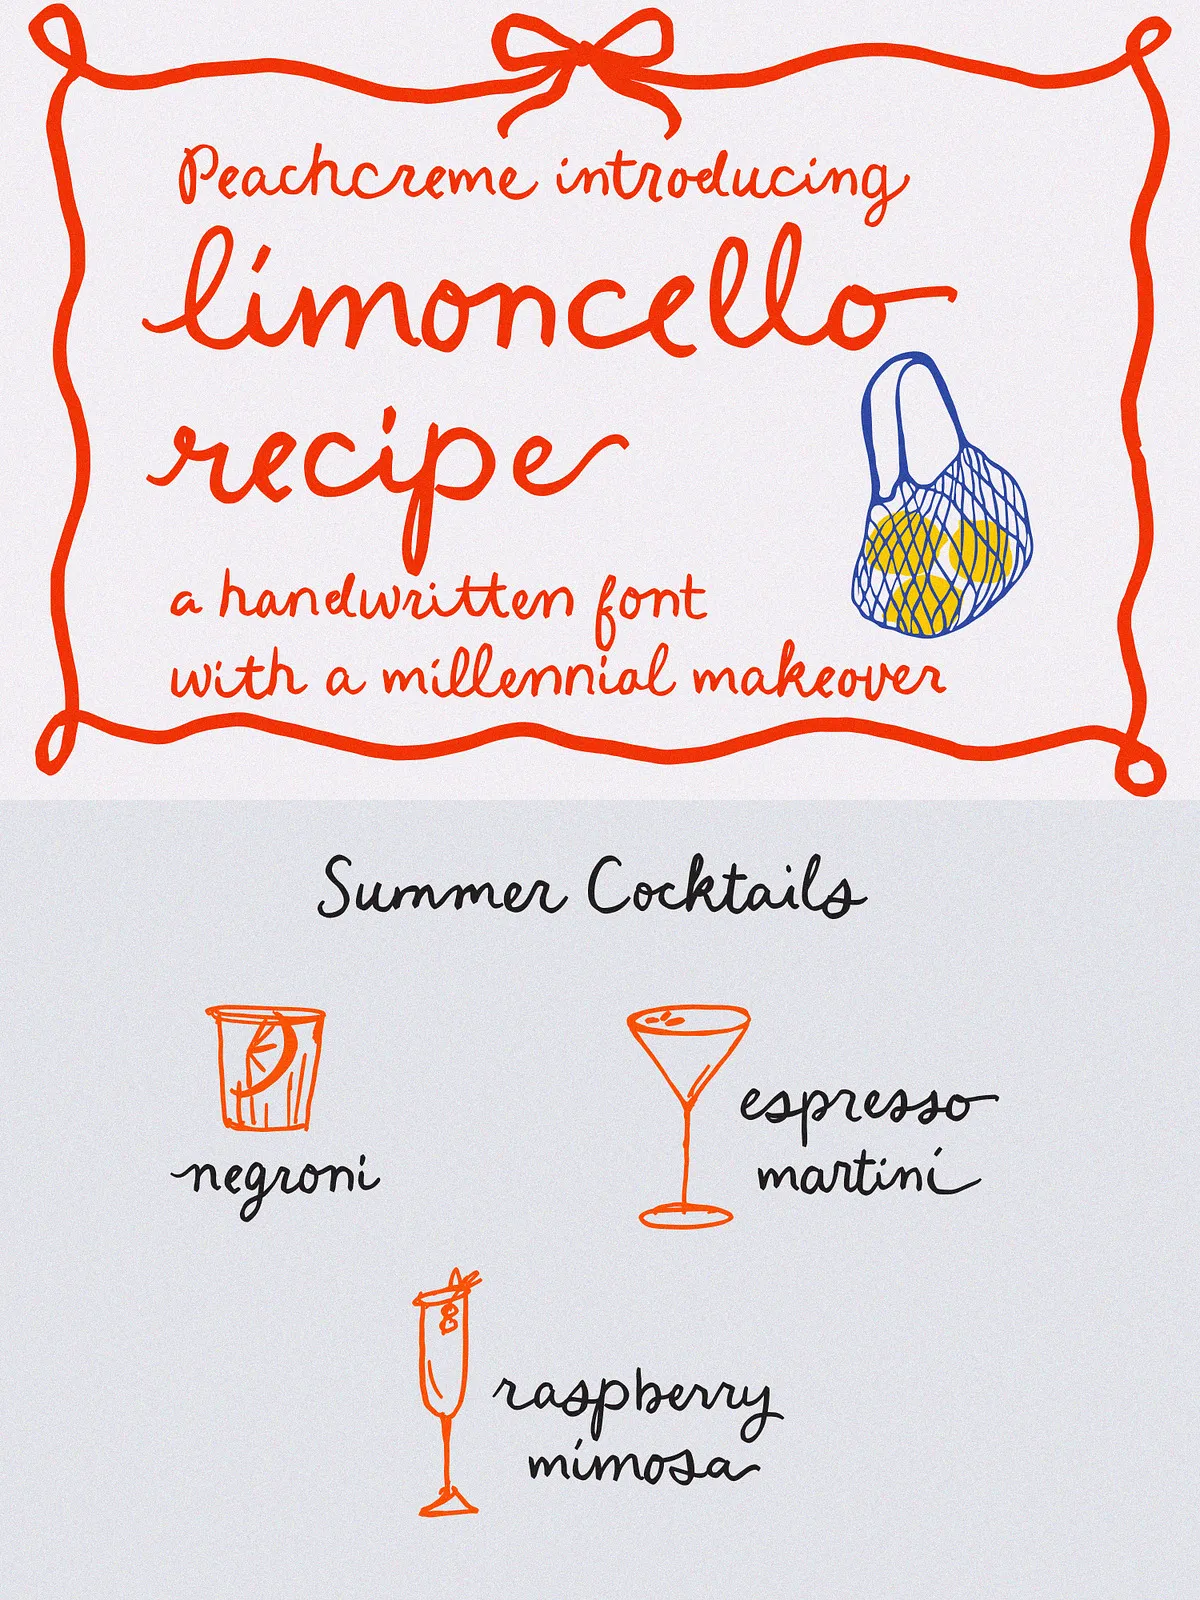 Peachcreme introducing
limoncello
recipe
a handwritten font
with a millennial makeover
Summer Cocktails
negroni
espresso
martini
raspberry
mimosa